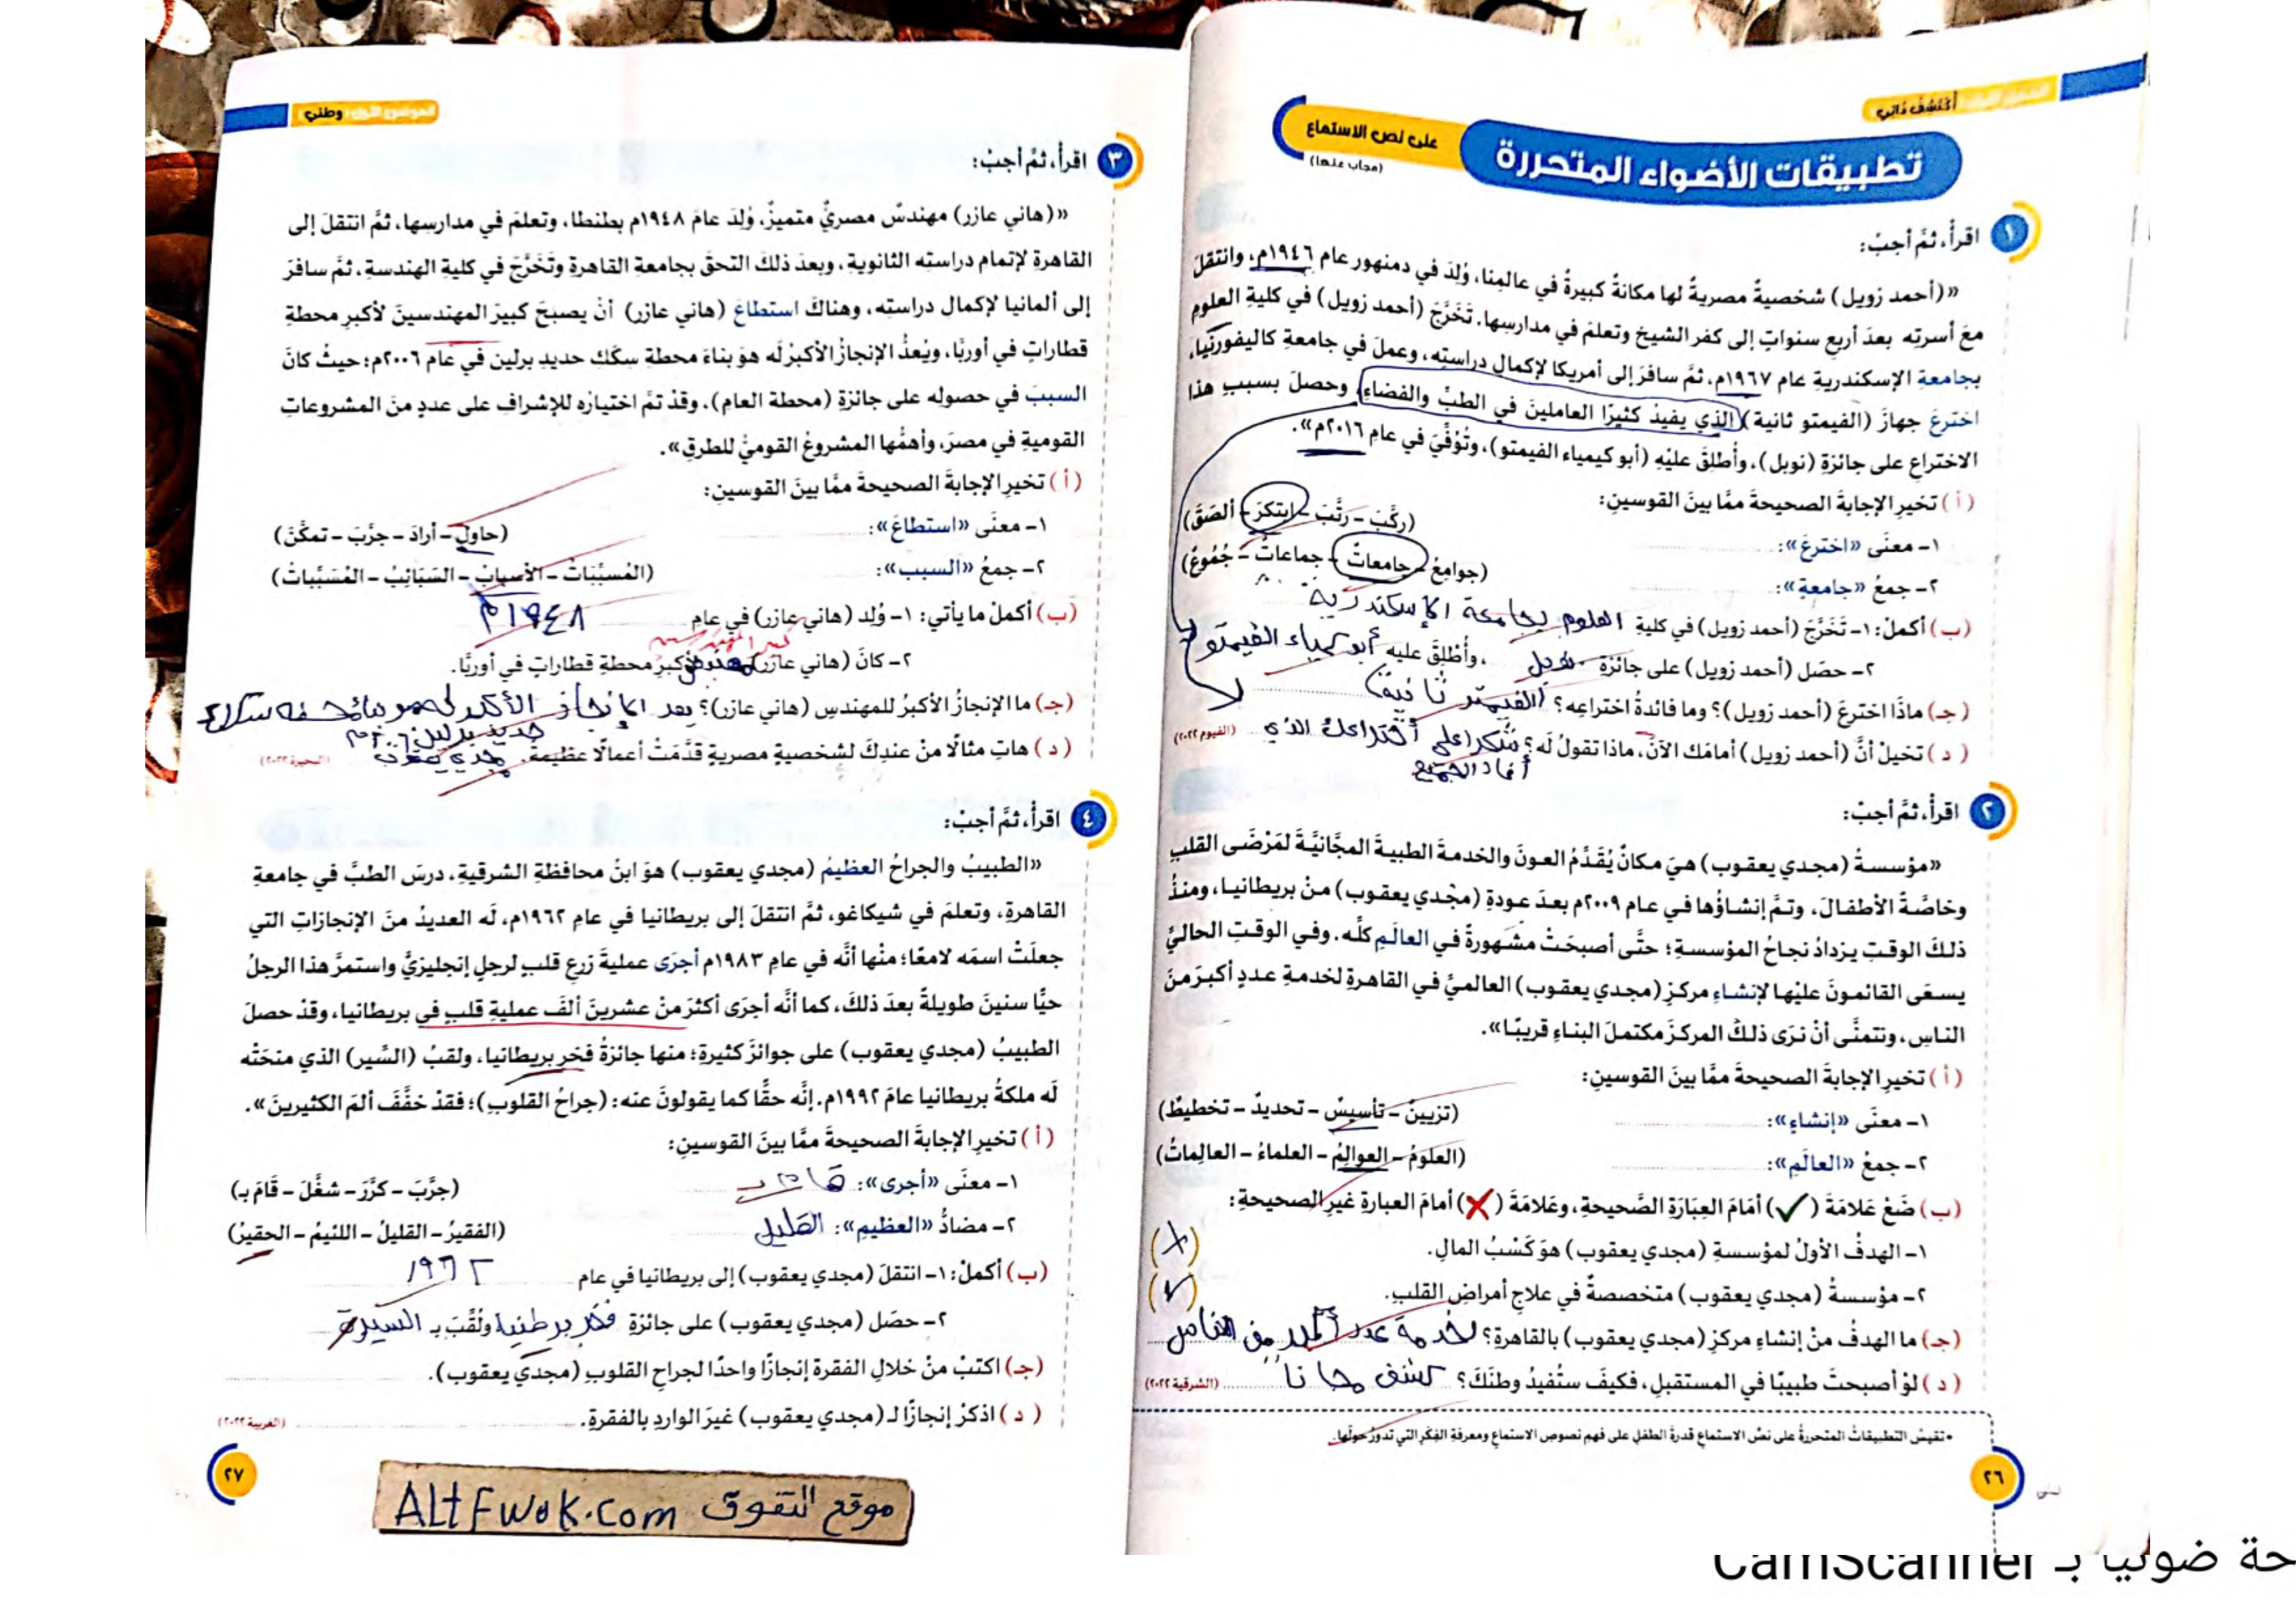 أكتشف ذاتي
تطبيقات الأضواء المتحررة
على نص الاستماع
(مجاب عنها)
١ اقرأ، ثمَّ أجبْ:
«(أحمد زويل) شخصيةٌ مصريةٌ لها مكانةٌ كبيرةٌ في عالمِنا، وُلِدَ في دمنهور عام ١٩٤٦م، وانتقلَ
معَ أسرتِه بعدَ أربعِ سنواتٍ إلى كفر الشيخ وتعلمَ في مدارسِها. تَخَرَّجَ (أحمد زويل) في كليةِ العلومِ
بجامعةِ الإسكندريةِ عام ١٩٦٧م، ثمَّ سافرَ إلى أمريكا لإكمالِ دراستِه، وعملَ في جامعةِ كاليفورنيا،
اخترعَ جهازَ (الفيمتو ثانية) الذي يفيدُ كثيرًا العاملينَ في الطبِّ والفضاءِ، وحصلَ بسببِ هذا
الاختراعِ على جائزةِ (نوبل)، وأُطلقَ عليْهِ (أبو كيمياء الفيمتو)، وتُوُفِّيَ في عامِ ٢٠١٦م».
(أ) تخيرِ الإجابةَ الصحيحةَ ممَّا بينَ القوسينِ:
١- معنَى «اخترعَ»: (ركَّبَ - رتَّبَ - ابتكرَ - ألصَقَ)
٢- جمعُ «جامعة»: (جوامعُ - جامعاتٌ - جماعاتٌ - جُمُوعٌ)
(ب) أكملْ: ١- تَخَرَّجَ (أحمد زويل) في كليةِ العلوم بجامعة الإسكندرية
٢- حصَل (أحمد زويل) على جائزةِ نوبل، وأُطلِقَ عليه أبو كيمياء الفيمتو
(جـ) ماذَا اخترعَ (أحمد زويل)؟ وما فائدةُ اختراعِه؟ (الفيمتو ثانية)
(د) تخيلْ أنَّ (أحمد زويل) أمامَك الآنَ، ماذا تقولُ لَه؟ شكرا على أختراعك الذي (الفيوم ٢٠٢٢)
أفاد الجميع
٢ اقرأ، ثمَّ أجبْ:
«مؤسسةُ (مجدي يعقوب) هيَ مكانٌ يُقَدِّمُ العونَ والخدمةَ الطبيةَ المجَّانيَّةَ لمَرْضَى القلبِ
وخاصَّةً الأطفالَ، وتمَّ إنشاؤُها في عام ٢٠٠٩م بعدَ عودةِ (مجْدي يعقوب) منْ بريطانيا، ومنذُ
ذلكَ الوقتِ يزدادُ نجاحُ المؤسسةِ؛ حتَّى أصبحَتْ مشهورةً في العالَمِ كلِّه. وفي الوقتِ الحاليِّ
يسعَى القائمونَ عليْها لإنشاءِ مركزِ (مجدي يعقوب) العالميِّ في القاهرةِ لخدمةِ عددٍ أكبرَ منَ
الناسِ، ونتمنَّى أنْ نرَى ذلكَ المركزَ مكتملَ البناءِ قريبًا».
(أ) تخيرِ الإجابةَ الصحيحةَ ممَّا بينَ القوسينِ:
١- معنَى «إنشاءِ»: (تزيينٌ - تأسيسٌ - تحديدٌ - تخطيطٌ)
٢- جمعُ «العالَمِ»: (العلومُ - العوالِمُ - العلماءُ - العالِماتُ)
(ب) ضَعْ عَلامَةَ (✓) أمَامَ العِبَارَةِ الصَّحيحةِ، وعَلامَةَ (✗) أمامَ العبارةِ غيرِ الصحيحةِ:
١- الهدفُ الأولُ لمؤسسةِ (مجدي يعقوب) هوَ كَسْبُ المالِ. (✗)
٢- مؤسسةُ (مجدي يعقوب) متخصصةٌ في علاجِ أمراضِ القلبِ. (✓)
(جـ) ما الهدفُ منْ إنشاءِ مركزِ (مجدي يعقوب) بالقاهرةِ؟ لخدمة عدد أكبر من الناس
(د) لوْ أصبحتَ طبيبًا في المستقبلِ، فكيفَ ستُفيدُ وطنَكَ؟ كشف مجانا (الشرقية ٢٠٢٢)
• تقيسُ التطبيقاتُ المتحررةُ على نصِّ الاستماعِ قدرةَ الطفلِ على فهمِ نصوصِ الاستماعِ ومعرفةِ الفِكَرِ التي تدورُ حولَها.
٢٦
الموضوع الأول وطني
٣ اقرأْ، ثمَّ أجبْ:
«(هاني عازر) مهندسٌ مصريٌّ متميزٌ، وُلِدَ عامَ ١٩٤٨م بطنطا، وتعلمَ في مدارسِها، ثمَّ انتقلَ إلى
القاهرةِ لإتمامِ دراستِه الثانويةِ، وبعدَ ذلكَ التحقَ بجامعةِ القاهرةِ وتَخَرَّجَ في كليةِ الهندسةِ، ثمَّ سافرَ
إلى ألمانيا لإكمالِ دراستِه، وهناكَ استطاعَ (هاني عازر) أنْ يصبحَ كبيرَ المهندسينَ لأكبرِ محطةِ
قطاراتٍ في أوربَّا، ويُعدُّ الإنجازُ الأكبرُ لَه هوَ بناءَ محطةِ سكَك حديدِ برلين في عام ٢٠٠٦م؛ حيثُ كانَ
السببَ في حصولِه على جائزةِ (محطة العام)، وقدْ تمَّ اختيارُه للإشرافِ على عددٍ منَ المشروعاتِ
القوميةِ في مصرَ، وأهمُّها المشروعُ القوميُّ للطرقِ».
(أ) تخيرِ الإجابةَ الصحيحةَ ممَّا بينَ القوسينِ:
١- معنَى «استطاعَ»: (حاولَ - أرادَ - جرَّبَ - تمكَّنَ)
٢- جمعُ «السبب»: (المُسبِّبَاتُ - الأسبابُ - السَّبَائِبُ - المُسَبَّباتُ)
(ب) أكملْ ما يأتي: ١- وُلِد (هاني عازر) في عام ١٩٤٨م
كبير المهندسين
٢- كانَ (هاني عازر) لأكبرِ محطةِ قطاراتٍ في أوربَّا.
(جـ) ما الإنجازُ الأكبرُ للمهندسِ (هاني عازر)؟ يعد الإنجاز الأكبر له هو بناء محطة سكك
حديد برلين ٢٠٠٦م
(د) هاتِ مثالًا منْ عندِكَ لشخصيةٍ مصريةٍ قدَّمَتْ أعمالًا عظيمةً. مجدي يعقوب (البحيرة ٢٠٢٢)
٤ اقرأْ، ثمَّ أجبْ:
«الطبيبُ والجراحُ العظيمُ (مجدي يعقوب) هوَ ابنُ محافظةِ الشرقيةِ، درسَ الطبَّ في جامعةِ
القاهرةِ، وتعلمَ في شيكاغو، ثمَّ انتقلَ إلى بريطانيا في عامِ ١٩٦٢م، لَه العديدُ منَ الإنجازاتِ التي
جعلَتْ اسمَه لامعًا؛ منْها أنَّه في عامِ ١٩٨٣م أجرَى عمليةَ زرعِ قلبٍ لرجلٍ إنجليزيٍّ واستمرَّ هذا الرجلُ
حيًّا سنينَ طويلةً بعدَ ذلكَ، كما أنَّه أجرَى أكثرَ منْ عشرينَ ألفَ عمليةِ قلبٍ في بريطانيا، وقدْ حصلَ
الطبيبُ (مجدي يعقوب) على جوائزَ كثيرةٍ؛ منها جائزةُ فخرِ بريطانيا، ولقبُ (السِّير) الذي منحَتْه
لَه ملكةُ بريطانيا عامَ ١٩٩٢م. إنَّه حقًّا كما يقولونَ عنه: (جراحُ القلوبِ)؛ فقدْ خفَّفَ ألمَ الكثيرينَ».
(أ) تخيرِ الإجابةَ الصحيحةَ ممَّا بينَ القوسينِ:
١- معنَى «أجرى»: قام بـ (جرَّبَ - كرَّرَ - شغَّلَ - قَامَ بـ)
٢- مضادُّ «العظيمِ»: القليل (الفقيرُ - القليلُ - اللئيمُ - الحقيرُ)
(ب) أكملْ: ١- انتقلَ (مجدي يعقوب) إلى بريطانيا في عام ١٩٦٢
٢- حصَل (مجدي يعقوب) على جائزةِ فخر برطنيا ولُقِّبَ بـ السير
(جـ) اكتبْ منْ خلالِ الفقرةِ إنجازًا واحدًا لجراحِ القلوبِ (مجدي يعقوب).
(د) اذكرْ إنجازًا لـ(مجدي يعقوب) غيرَ الواردِ بالفقرةِ. (الغربية ٢٠٢٢)
٢٧
موقع التفوق ALtFwoK.com
حة ضوئيا بـ CamScanner